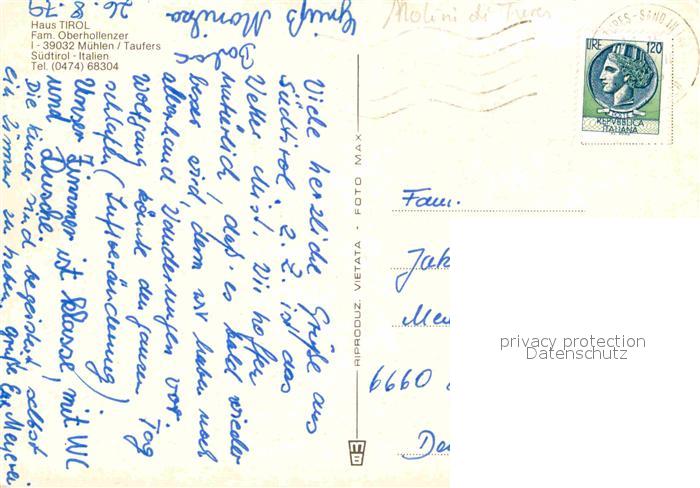 Haus TIROL
Fam. Oberhollenzer
I - 39032 Mühlen / Taufers
Südtirol - Italien
Tel. (0474) 68304
26.8.79
Gruß Monika
Viele herzliche Grüße aus
Südtirol. Z.Z. ist das
Wetter Mist. Wir hoffen
natürlich, daß es bald wieder
besser wird, denn wir haben noch
allerhand Wanderungen vor.
Wolfgang könnte den ganzen Tag
schlafen (Luftveränderung)
Unser Zimmer ist Klasse, mit WC
und Dusche.
Die Kinder sind begeistert, selbst
ein Zimmer zu haben. Grüße Eure Meyers.
RIPRODUZ. VIETATA - FOTO MAX
Molini di Tures
LIRE 120
POSTE
REPVBBLICA
ITALIANA
Fam.
Jak
6660
privacy protection
Datenschutz